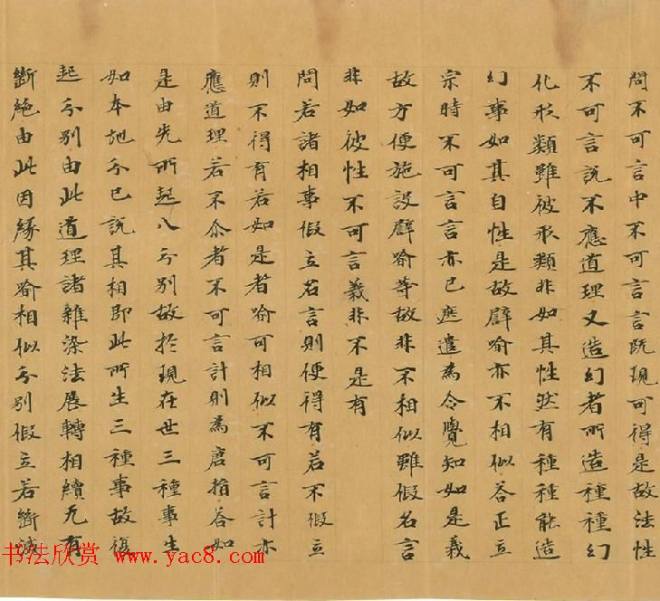 問不可言中不可言言既現可得是故法性
不可言說不應道理又造幻者所造種種幻
化形類雖彼形類非如其性然有種種能造
幻事如其自性是故辟喻亦不相似答正立
宗時不可言言亦已應遣為令覺知如是義
故方便施設辟喻等故非不相似雖假名言
非如彼性不可言義非不是有
問若諸相事假立名言則便得有若不假立
則不得有若如是者喻可相似不可言計亦
應道理若不尒者不可言計則為唐捐答如
是由先所起八分別故於現在世三種事生
如本地分已說其相即此所生三種事故復
起分別由此道理諸雜染法展轉相續无有
斷絕由此因緣其喻相似分別假立若斷滅
书法欣赏 www.yac8.com